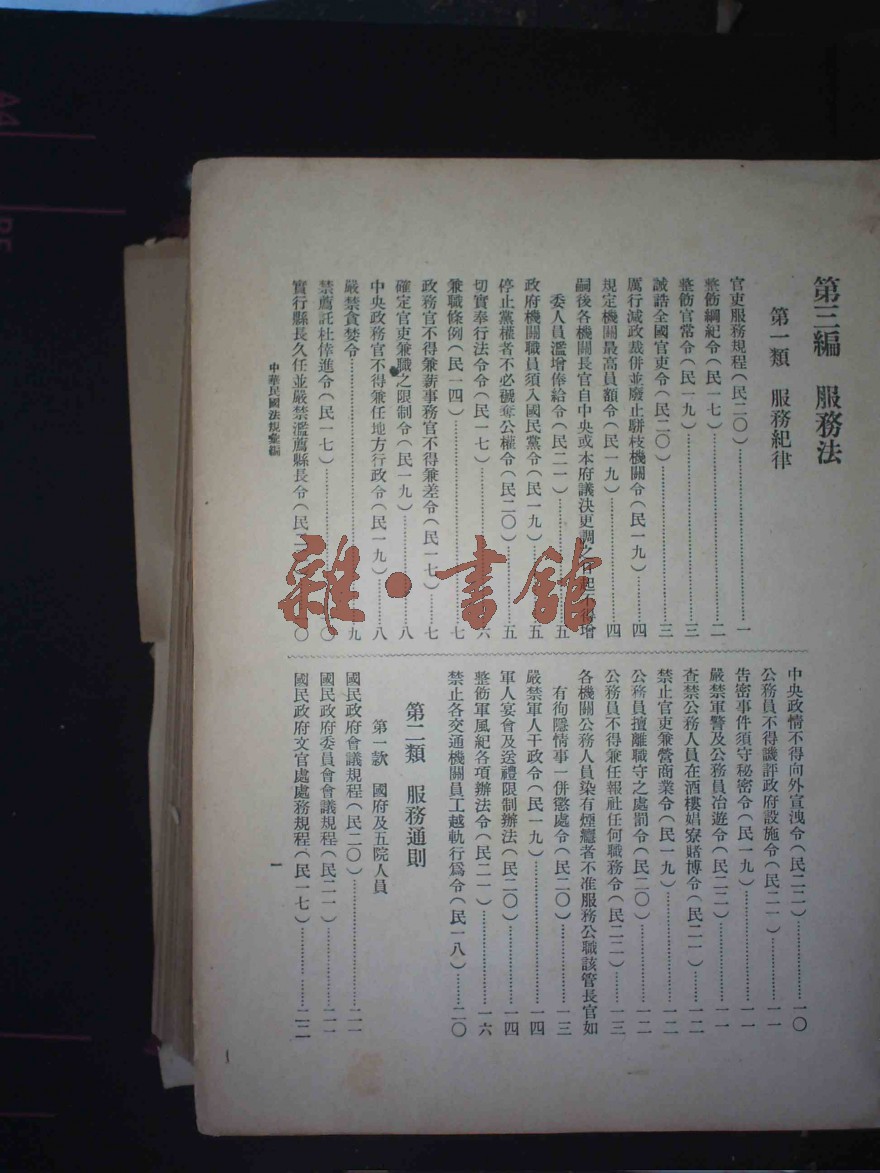 第三編　服務法
第一類　服務紀律
官吏服務規程(民二〇)……一
整飭綱紀令(民一七)……二
整飭官常令(民一九)……三
誡誥全國官吏令(民二〇)……三
厲行減政裁併並廢止駢枝機關令(民一九)……四
規定機關最高員額令(民一九)……四
嗣後各機關長官自中央或本府議決更調之日起增
委人員濫增俸給令(民二一)……五
政府機關職員須入國民黨令(民一九)……五
停止黨權者不必褫奪公權令(民二〇)……五
切實奉行法令令(民一七)……六
兼職條例(民一四)……七
政務官不得兼薪事務官不得兼差令(民一七)……七
確定官吏兼職之限制令(民一九)……八
中央政務官不得兼任地方行政令(民一九)……八
嚴禁貪婪令……九
禁薦託杜倖進令(民一七)……〇
實行縣長久任並嚴禁濫薦縣長令(民……〇
中央政情不得向外宣洩令(民二二)……一〇
公務員不得譏評政府設施令(民二一)……一一
告密事件須守秘密令(民一九)……一一
嚴禁軍警及公務員冶遊令(民二二)……一一
查禁公務人員在酒樓娼寮賭博令(民二一)……一二
禁止官吏兼營商業令(民一九)……一二
公務員擅離職守之處罰令(民二〇)……一二
公務員不得兼任報社任何職務令(民二二)……一三
各機關公務人員染有煙癮者不准服務公職該管長官如
有徇隱情事一併懲處令(民二〇)……一三
嚴禁軍人干政令(民一九)……一四
軍人宴會及送禮限制辦法(民二〇)……一四
整飭軍風紀各項辦法令(民二一)……一六
禁止各交通機關員工越軌行為令(民一八)……二〇
第二類　服務通則
第一款　國府及五院人員
國民政府會議規程(民二〇)……二一
國民政府委員會會議規程(民二一)……二一
國民政府文官處處務規程(民一七)……二二
中華民國法規彙編
一
雜・書館